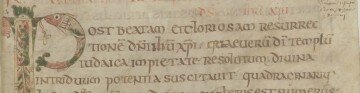 POST BEATAM ET GLORIOSAM RESURREC
TIONĒ DN̄I NR̄I IH̄U XP̄I QUA VERUM DĪ TEMPLŪ
IUDAICA IMPIETATE RESOLUTUM DIVINA
IN TRIDUUM POTENTIA SUSCITAVIT QUADRAGINARIUS